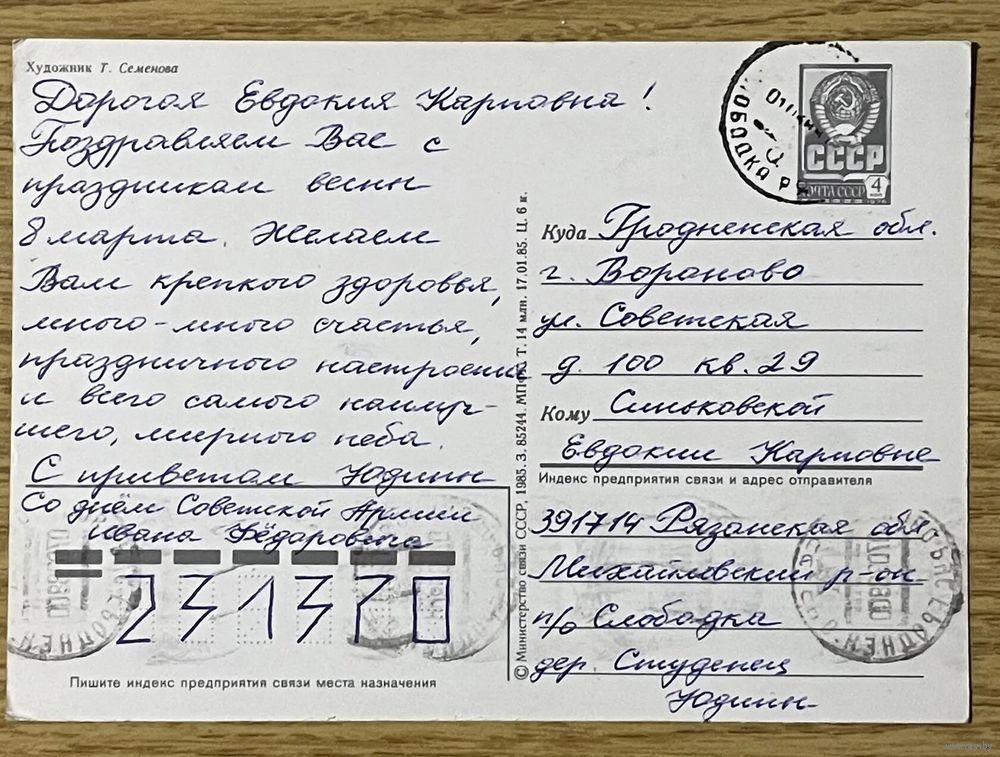 Художник Т. Семенова
Дорогая Евдокия Карповна!
Поздравляем Вас с
праздникам весны
8 марта. Желаем
Вам крепкого здоровья,
много-много счастья,
праздничного настроения
и всего самого наилуч-
шего, мирного неба.
С приветом Юдины
Со днём Советской Армии
Ивана Фёдаровича
231370
Пишите индекс предприятия связи места назначения
© Министерство связи СССР, 1985. З. 85244. МПФГ. Т. 14 млн. 17.01.85. Ц. 6 к.
СССР
ПОЧТА СССР
4
1976
СЛОБОДКА
Куда Гродненская обл.
г. Вораново
ул. Советская
д. 100 кв. 29
Кому Синьковской
Евдокии Карповне
Индекс предприятия связи и адрес отправителя
391714 Рязанская обл
Михайловский р-он
п/о Слободка
дер. Студенец
Юдины